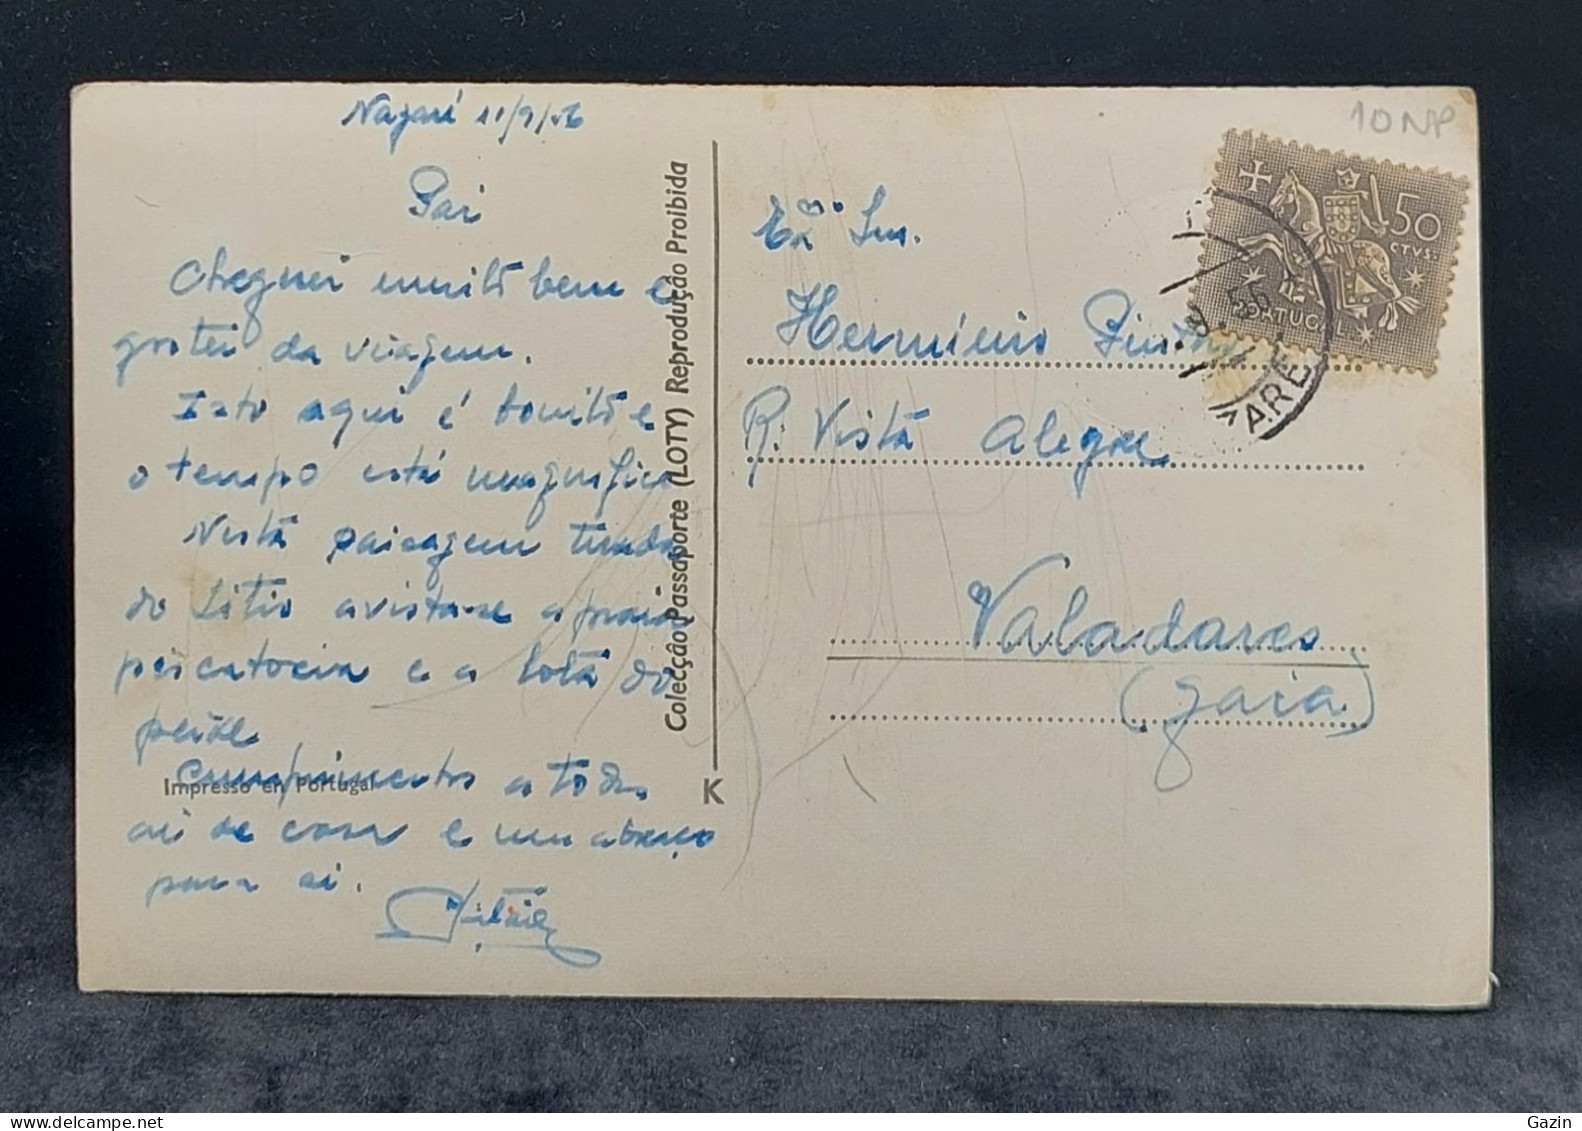 Nazaré 11/9/56
Pai
Cheguei muito bem e
gostei da viagem.
Isto aqui é bonito e
o tempo está magnifico
Nesta paisagem tirada
do Sitio avista-se a praia
piscatoria e a lota do
peixe
Cumprimentos a todos
ai de casa e um abraço
para si.
Impresso em Portugal
Colecção Passaporte (LOTY) Reprodução Proibida
K
10 NP
Exmº Snr.
Herminio
R. Vista Alegre
Valadares
(Gaia)
50
CTVS.
PORTUGAL
56
ARE
Gazin